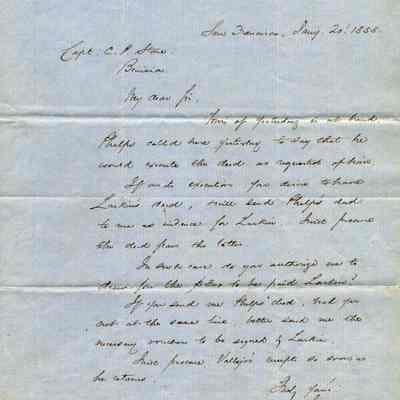 San Francisco, Jany. 20, 1855.
Capt. C. P. Stone.
Benicia
My dear Sir,
Yours of yesterday is at hand.
Phelps called here yesterday to say that he
would execute the deed as requested of him.
If and execution you desire to have
Larkin's deed, I will send Phelps' deed
to me as evidence for Larkin. I will procure
the deed from the latter.
In such case do you authorize me to
for the to be paid Larkin?
If you send me Phelps' deed, had you
not at the same time better send me the
necessary vouchers to be signed by Larkin.
I will procure Vallejo's receipts as soon as
he returns.
Truly Yours